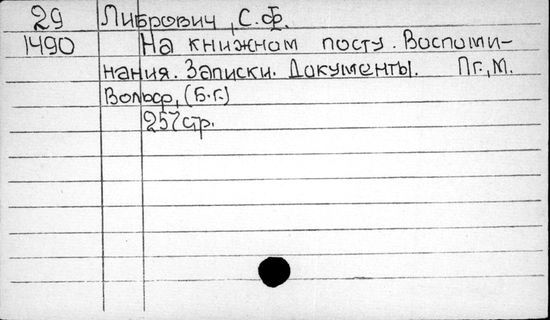 29 Либрович, С.Ф.
1490 На книжном посту. Воспоми-
нания. Записки. Документы. Пг., М.
Вольф, (Б.г.)
257стр.